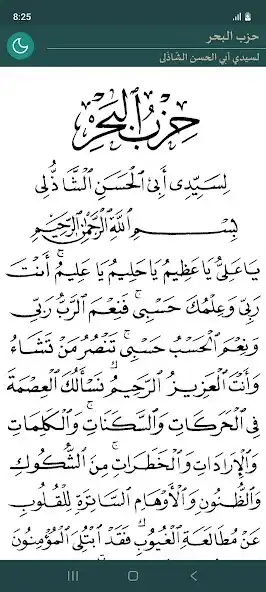 8:25
حزب البحر
لسيدي أبي الحسن الشاذلي
حِزْبُ الْبَحْرِ
لِسَيِّدِى أَبِى الْحَسَنِ الشَّاذُلِى
بِسْمِ اللَّهِ الرَّحْمَٰنِ الرَّحِيمِ
يَا عَلِىُّ يَا عَظِيمُ يَا حَلِيمُ يَا عَلِيمُ أَنْتَ
رَبِّى وَعِلْمُكَ حَسْبِى فَنِعْمَ الرَّبُّ رَبِّى
وَنِعْمَ الْحَسْبُ حَسْبِى تَنْصُرُ مَنْ تَشَاءُ
وَأَنْتَ الْعَزِيزُ الرَّحِيمُ نَسْأَلُكَ الْعِصْمَةَ
فِى الْحَرَكَاتِ وَالسَّكَنَاتِ وَالْكَلِمَاتِ
وَالْإِرَادَاتِ وَالْخَطَرَاتِ مِنَ الشُّكُوكِ
وَالظُّنُونِ وَالْأَوْهَامِ السَّاتِرَةِ لِلْقُلُوبِ
عَنْ مُطَالَعَةِ الْغُيُوبِ فَقَدْ ابْتُلِىَ الْمُؤْمِنُونَ